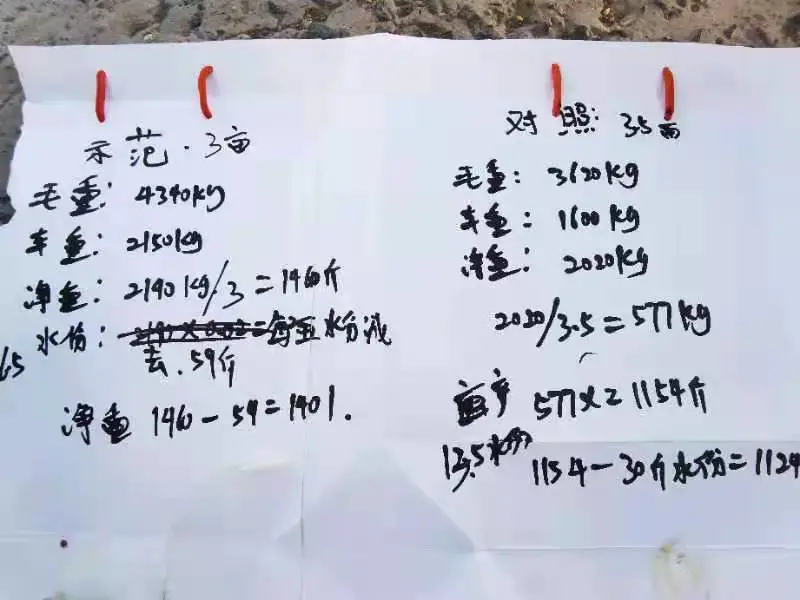 示范.3亩
毛重: 4340kg
车重: 2150kg
净重: 2190kg/3=1460斤
水份: 每亩水份减
去.59斤
净重 1460-59=1401.
对照: 3.5亩
毛重: 3620kg
车重: 1600kg
净重: 2020kg
2020/3.5=577kg
亩产 577×2=1154斤
13.5水份 1154-30斤水份=1124